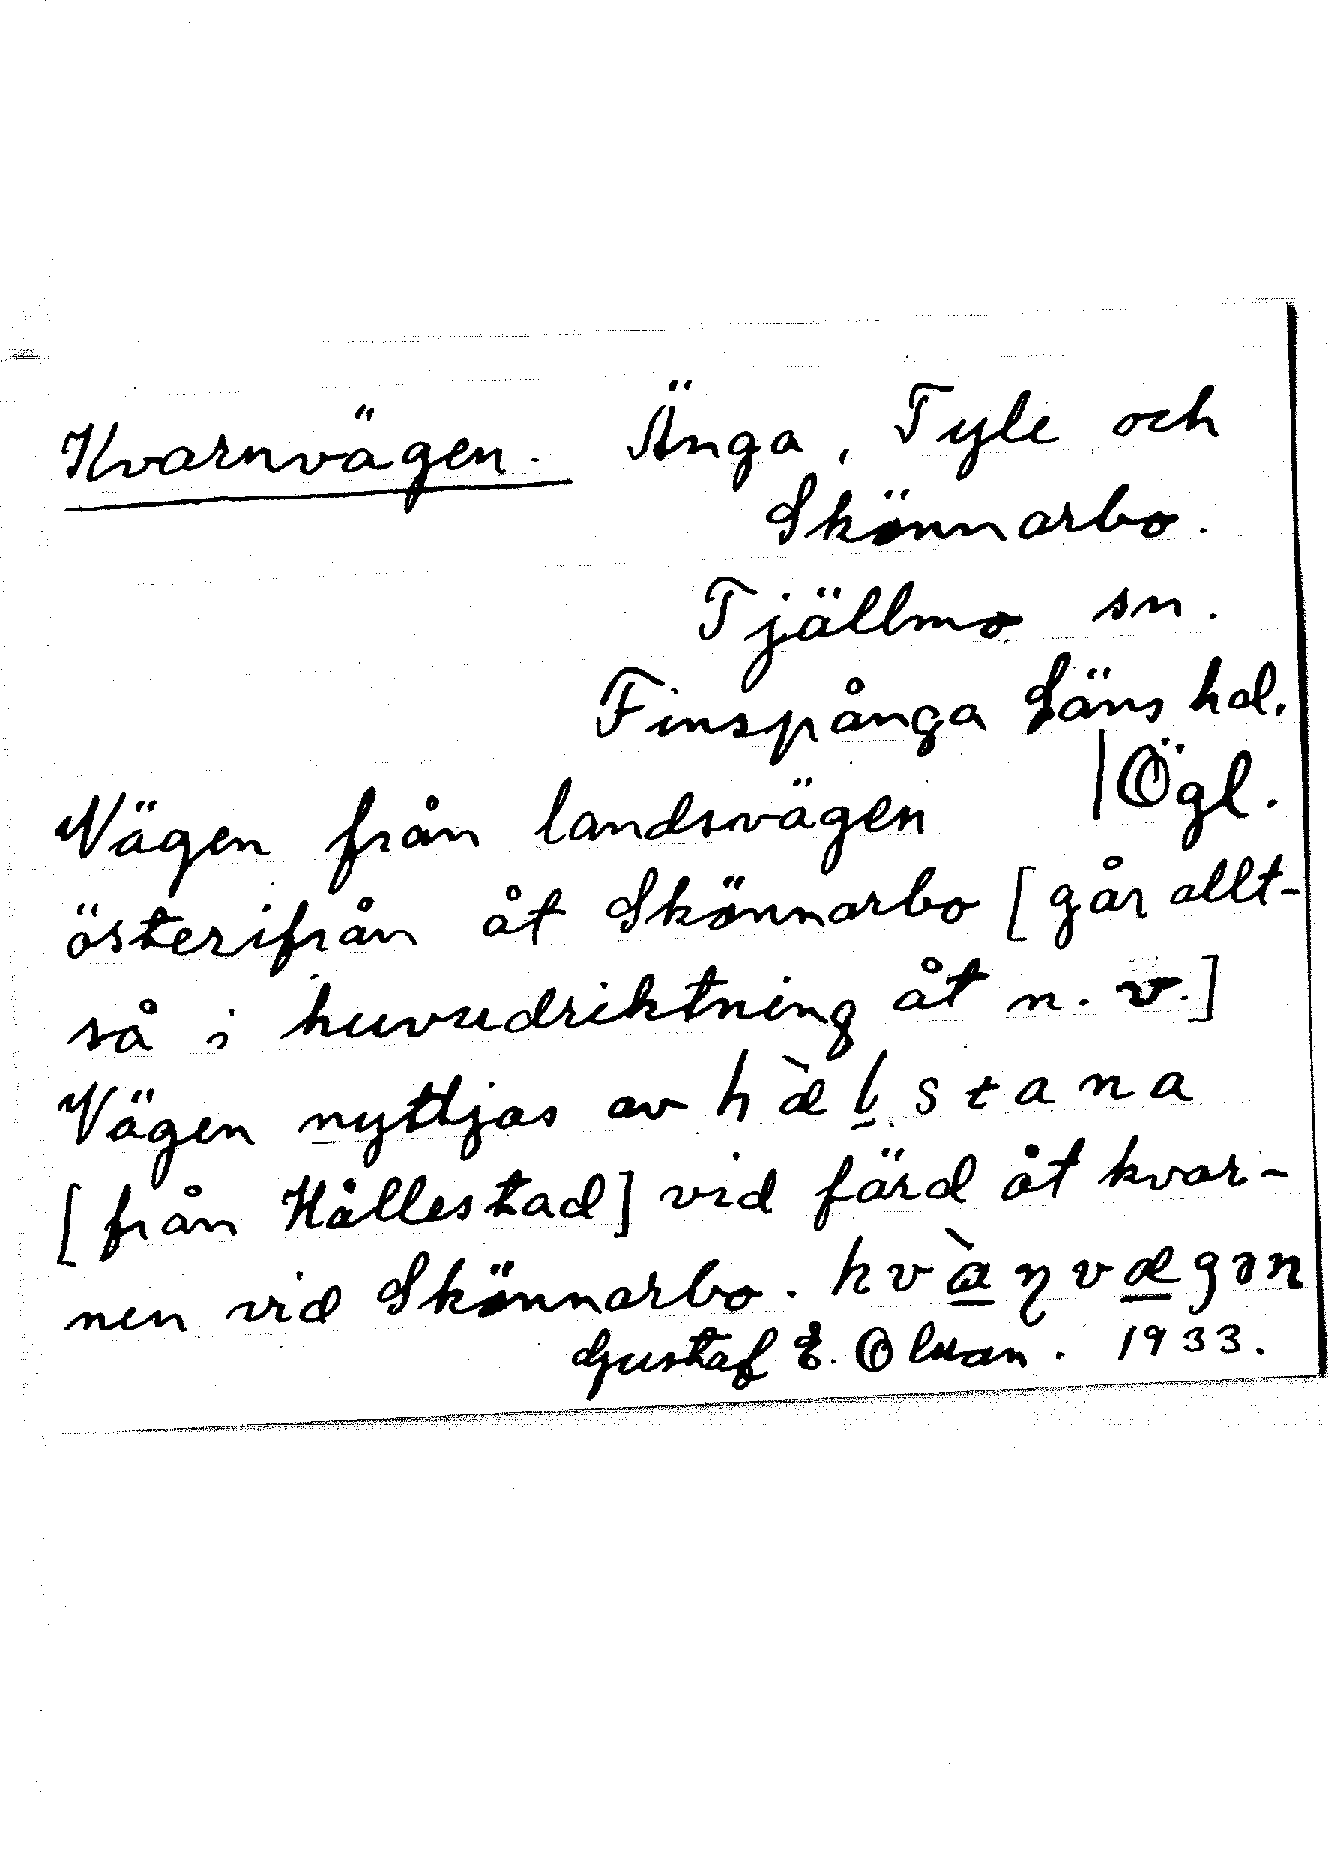 Kvarnvägen. Änga, Tyle och
Skönnarbo.
Tjällmo sn.
Finspånga Läns hd.
Vägen från landsvägen |Ögl.
österifrån åt Skönnarbo [går allt-
så i huvudriktning åt n. v.]
Vägen nyttjas av
[från Hällestad] vid färd åt kvar-
nen vid Skönnarbo.
Gustaf E. Olsson. 1933.